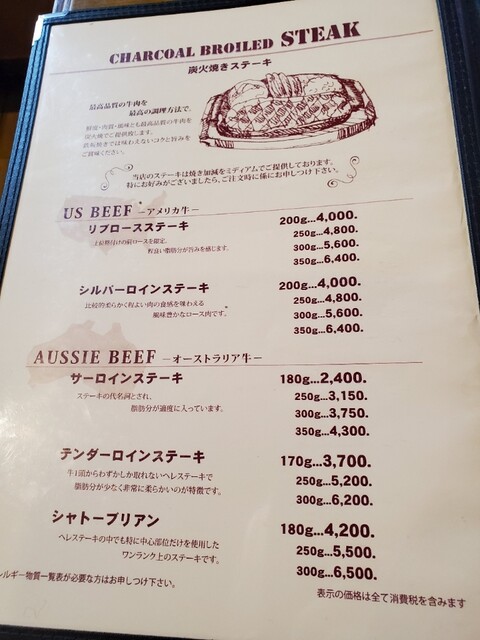 CHARCOAL BROILED STEAK
炭火焼きステーキ
最高品質の牛肉を
最高の調理方法で。
鮮度・肉質・風味とも最高品質の牛肉を
炭火焼でご提供致します。
鉄板焼きでは味わえないコクと旨みを
ご賞味ください。
当店のステーキは焼き加減をミディアムでご提供しております。
特にお好みがございましたら、ご注文時に係にお申しつけ下さい。
US BEEF －アメリカ牛－
リブロースステーキ
上位格付けの肩ロースを限定。
程良い脂肪分が旨みを感じます。
200g...4,000.
250g...4,800.
300g...5,600.
350g...6,400.
シルバーロインステーキ
比較的柔らかく程よい肉の食感を味わえる
風味豊かなロース肉です。
200g...4,000.
250g...4,800.
300g...5,600.
350g...6,400.
AUSSIE BEEF －オーストラリア牛－
サーロインステーキ
ステーキの代名詞とされ、
脂肪分が適度に入っています。
180g...2,400.
250g...3,150.
300g...3,750.
350g...4,300.
テンダーロインステーキ
牛1頭からわずかしか取れないヘレステーキで
脂肪分が少なく非常に柔らかいのが特徴です。
170g...3,700.
250g...5,200.
300g...6,200.
シャトーブリアン
ヘレステーキの中でも特に中心部位だけを使用した
ワンランク上のステーキです。
180g...4,200.
250g...5,500.
300g...6,500.
レルギー物質一覧表が必要な方はお申しつけ下さい。
表示の価格は全て消費税を含みます